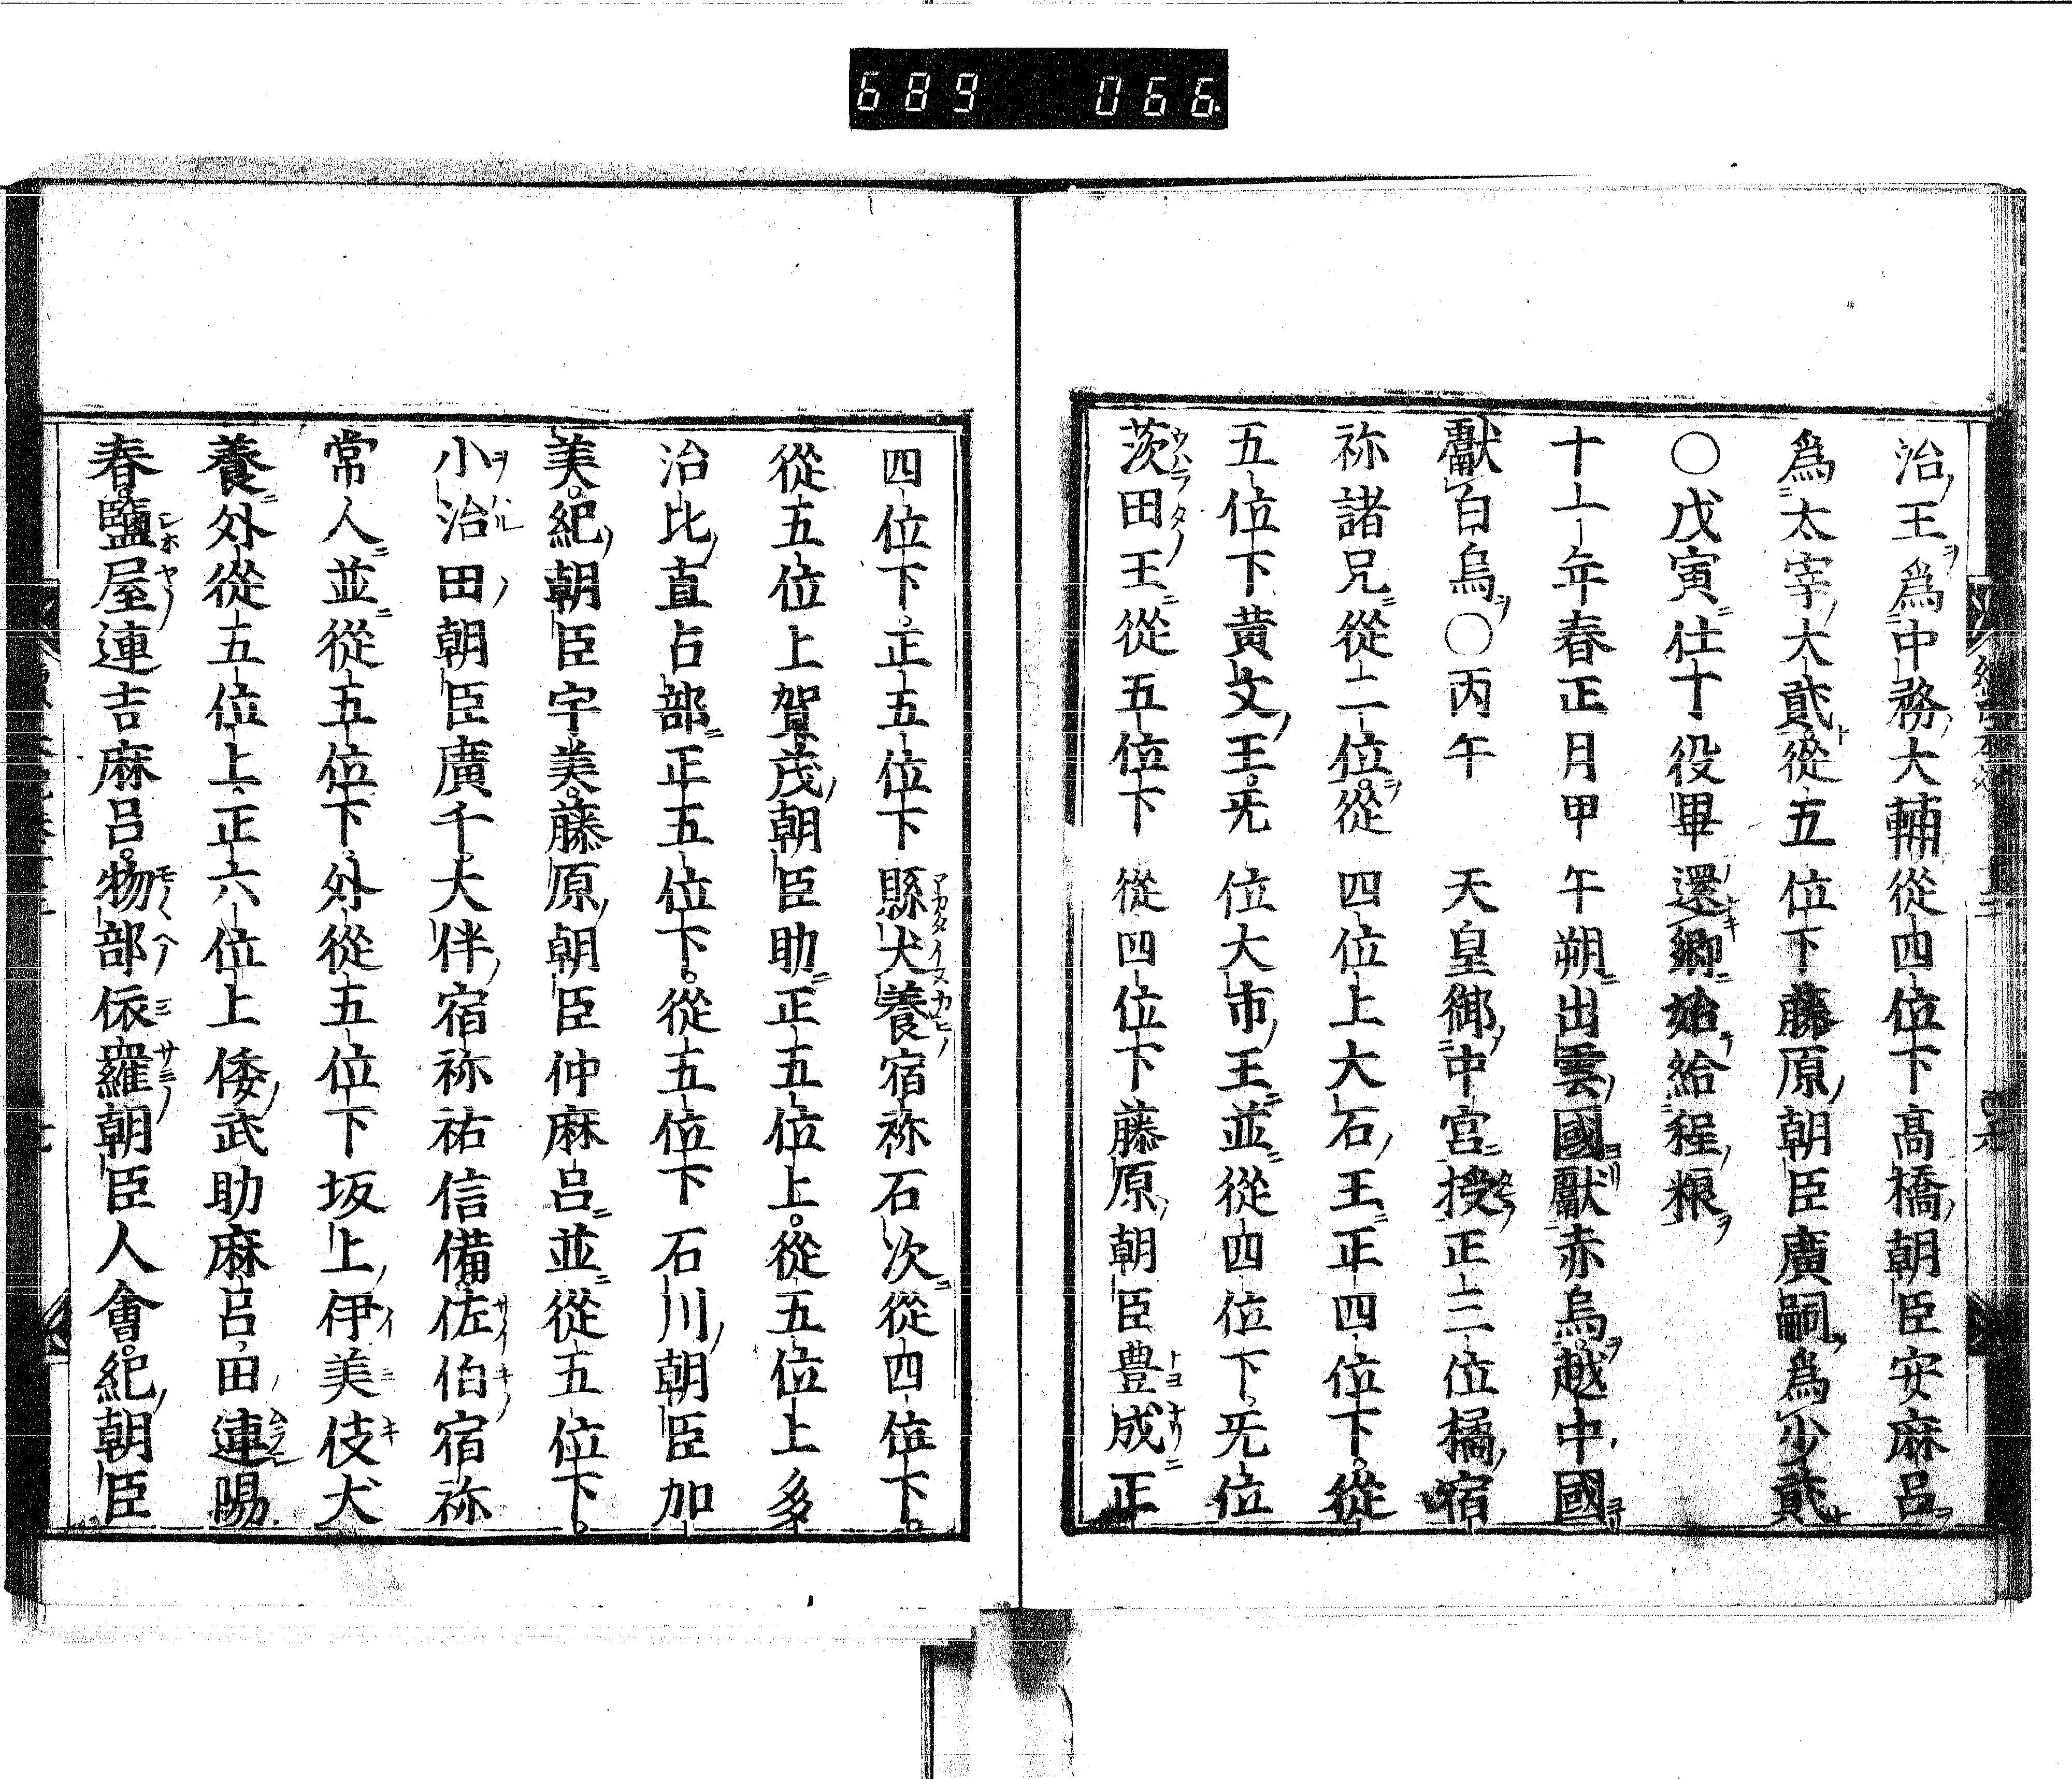 689 066
治王爲中務大輔從四位下髙橋朝臣安麻呂
爲太宰大貳從五位下藤原朝臣廣嗣爲少貳
〇戊寅仕丁役畢還鄉始給程粮
十一年春正月甲午朔出雲國獻赤烏越中國
獻白烏〇丙午天皇御中宮授正三位橘宿
祢諸兄從二位從四位上大石王正四位下從
五位下黄文王无位大市王並從四位下无位
茨田王從五位下從四位下藤原朝臣豊成正
四位下正五位下縣犬養宿祢石次從四位下
從五位上賀茂朝臣助正五位上從五位上多
治比直占部正五位下從五位下石川朝臣加
美紀朝臣宇美藤原朝臣仲麻呂並從五位下
小治田朝臣廣千大伴宿祢祐信備佐伯宿祢
常人並從五位下外從五位下坂上伊美伎犬
養外從五位上正六位上倭武助麻呂田連賜
春鹽屋連吉麻呂物部依羅朝臣人會紀朝臣